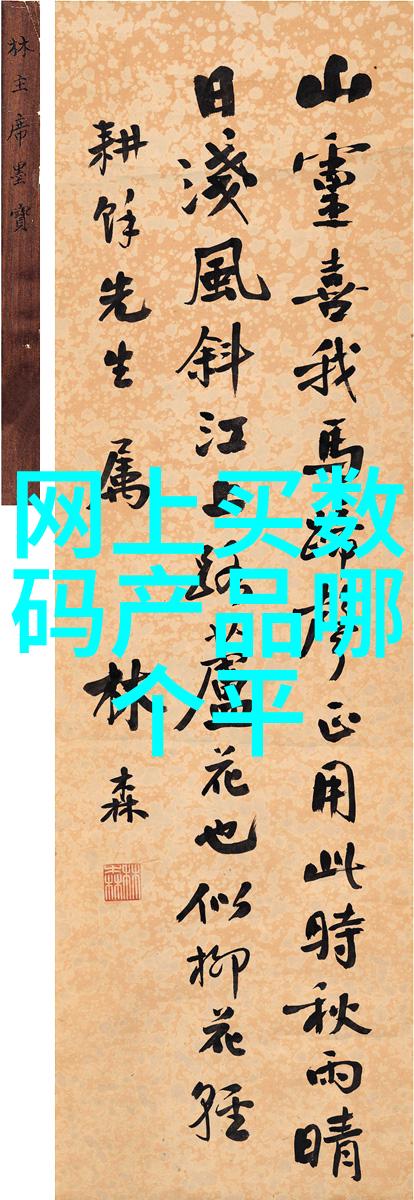 山靈喜我馬蹄聲正用此時秋雨晴
日淺風斜江上路蘆花也似柳花輕
耕餘先生 属 林森
林森
林主席墨寶
网上买数
码产品哪
个平